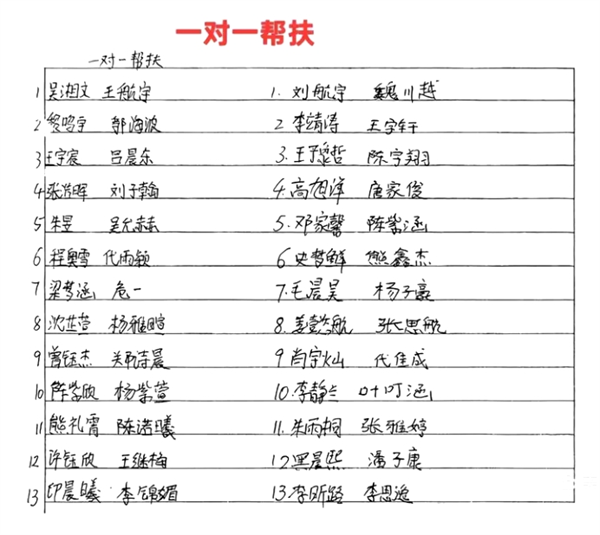 一对一帮扶
一对一帮扶
1 吴湘文 王航宇 1. 刘航宇 魏川越
2 黎鸣宇 郭海波 2 李靖涛 王宇轩
3 王宇宸 吕晨东 3. 王 哲 陈宇翔
4 张 晖 刘子翰 4. 高旭泽 唐家俊
5 朱昱 吴 5. 邓家馨 陈紫涵
6 程奥雪 代雨颖 6 史梦鲜 熊鑫杰
7 梁梦涵 危一 7. 毛晨昊 杨子豪
8 沈芷萱 杨雅暄 8. 姜 航 张思航
9 曾钰杰 关 诗晨 9 肖宇灿 代佳成
10 陈紫欣 杨紫萱 10. 李静兰 叶叮涵
11 熊礼霄 陈诺曦 11. 朱雨桐 张雅婷
12 许钰欣 王继梅 12 晨熙 潘子康
13 印晨曦 李锦媚 13. 李昕路 李思逸